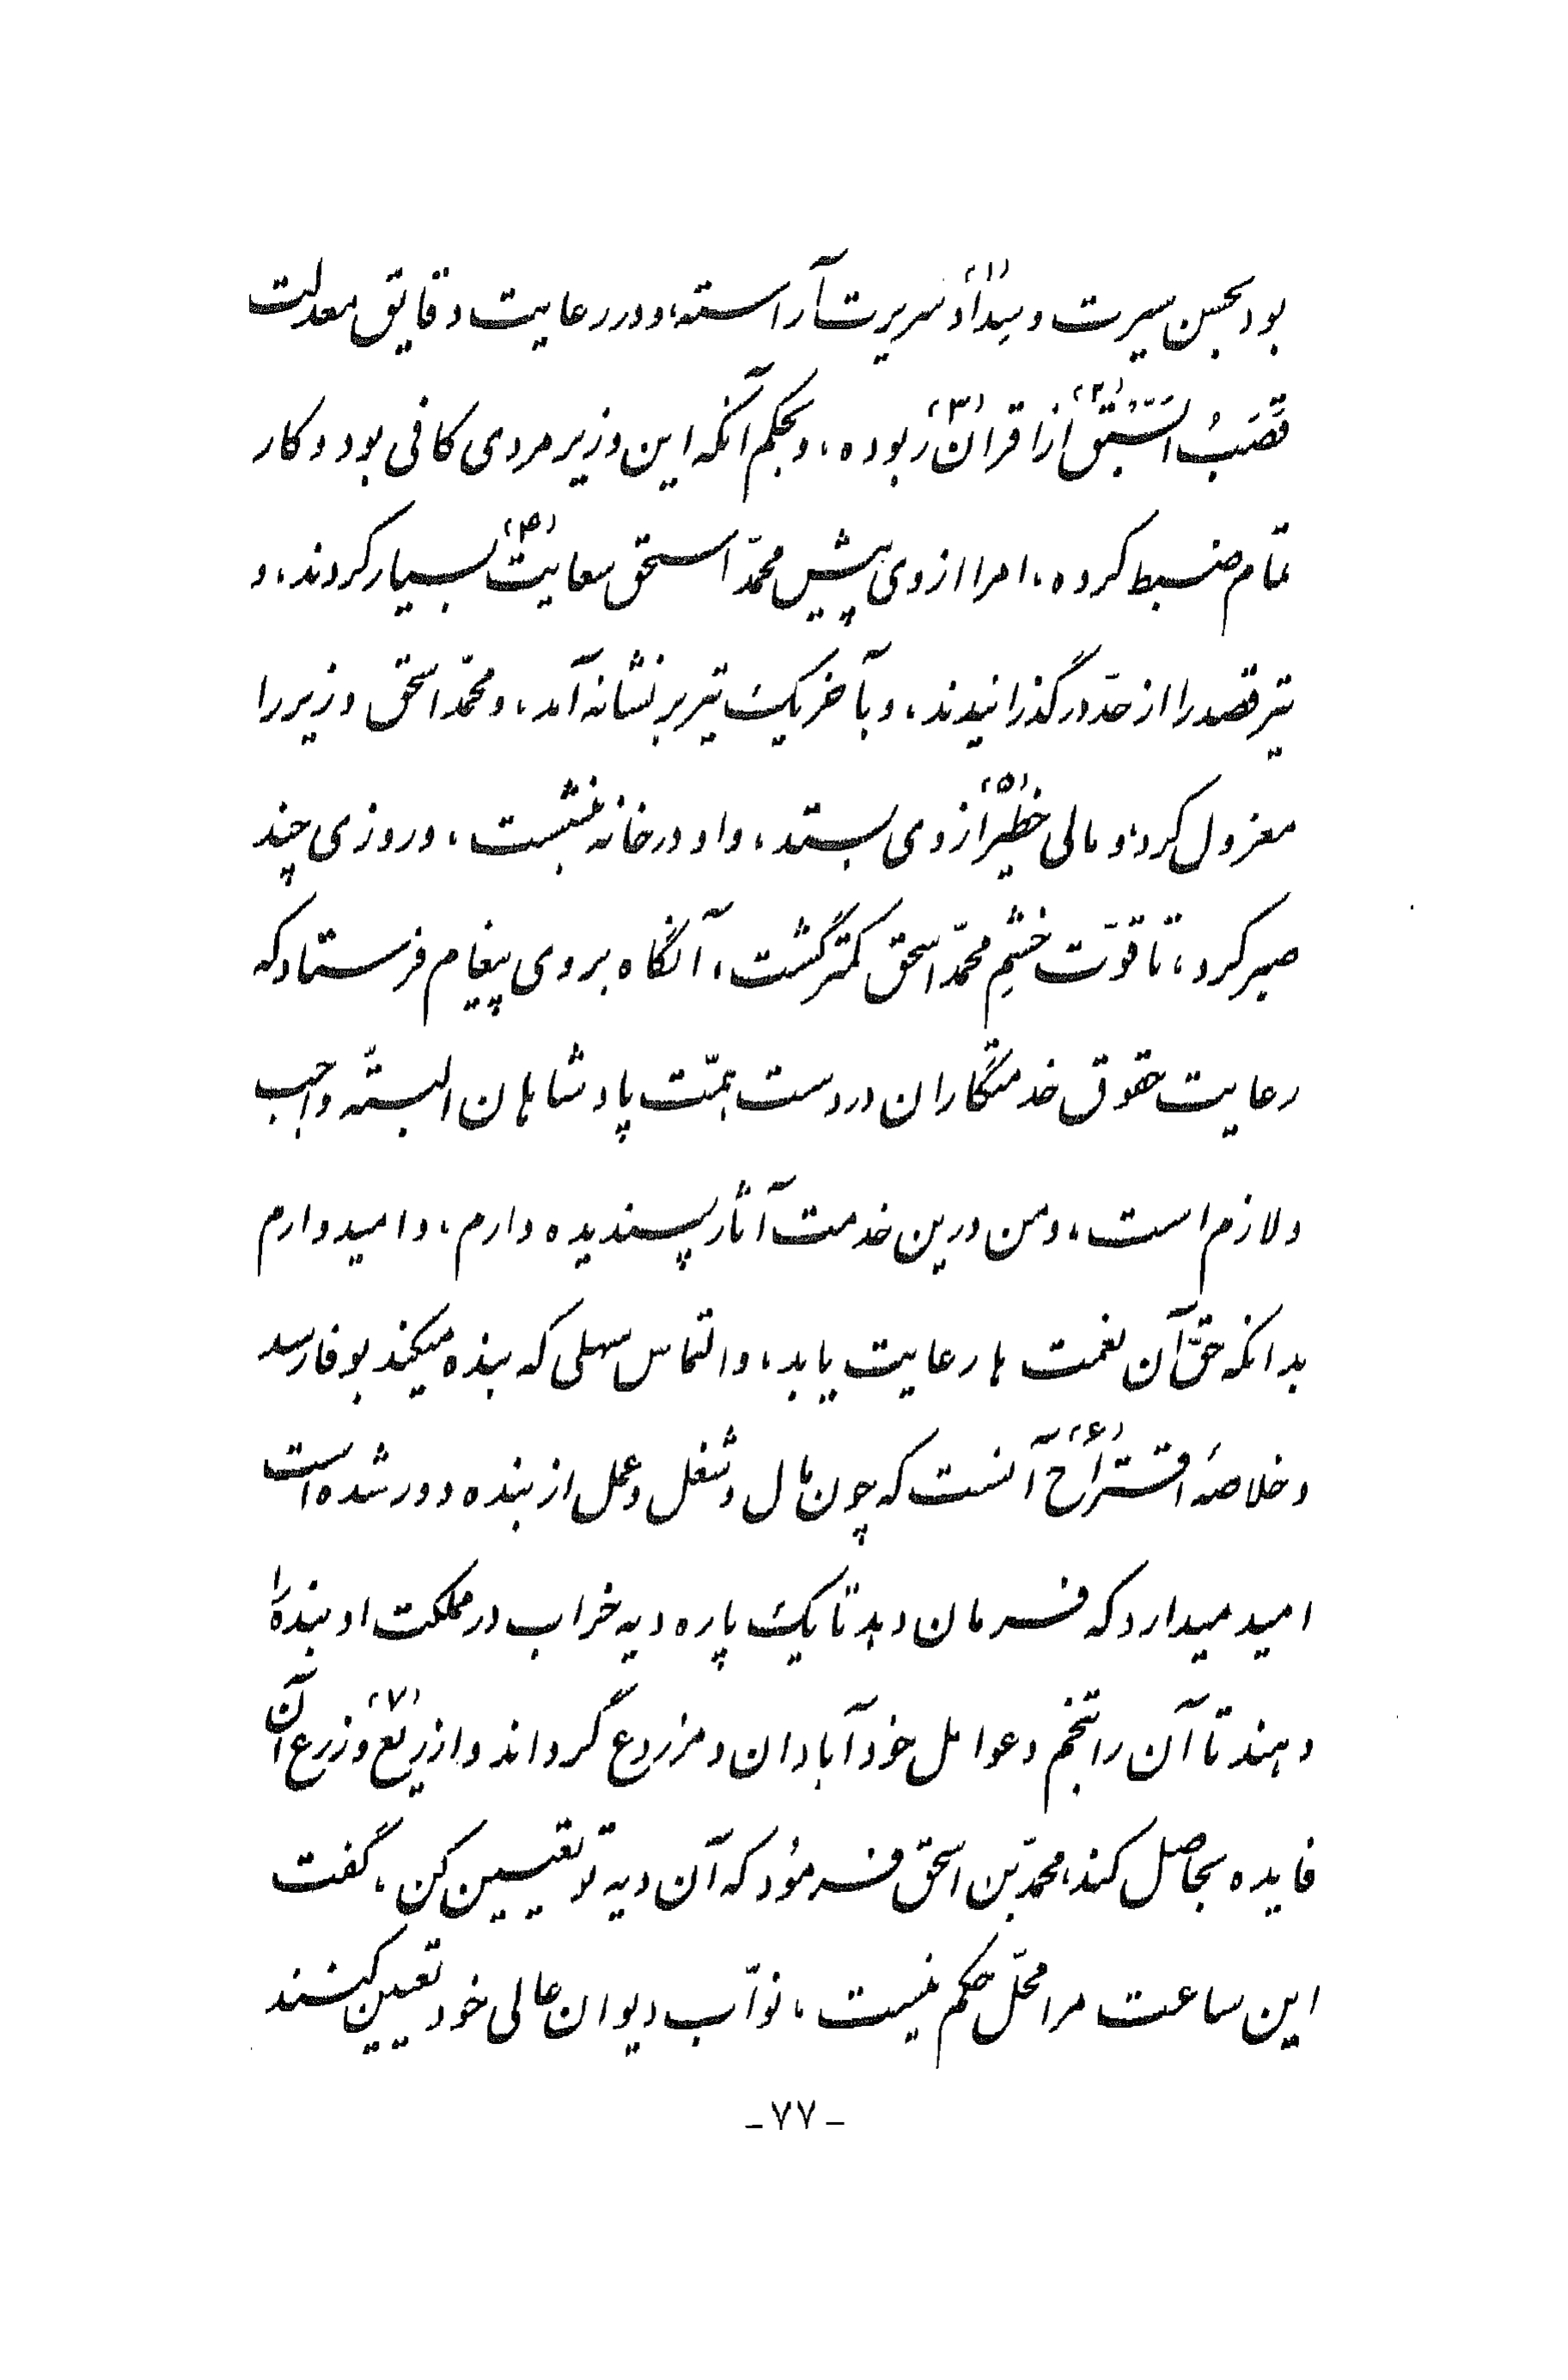 بود بحسن سیرت و سِداد(۱) سریرت آراسته، و در رعایت دقایق معدلت
قَصَبُ السَّبَق(۲) از اقران(۳) ربوده، و بحکم آنکه این وزیر مردی کافی بود و کار
تمام ضبط کرده، امرا از وی پیش محمّد اسحق سعایت(۴) بسیار کردند، و
تیر قصد را از حدّ درگذرانیدند، و بآخر یک تیر بر نشانه آمد، و محمّد اسحق وزیر را
معزول کرد، و مالی خطیر(۵) از وی بستد، و او در خانه بنشست، و روزی چند
صبر کرد، تا قوّت خشمِ محمّد اسحق کمتر گشت، آنگاه بر وی پیغام فرستاد که
رعایت حقوق خدمتگاران در دست همّت پادشاهان البتّه واجب
و لازم است، و من درین خدمت آثار پسندیده دارم، و امید دارم
بدانکه حقّ آن نعمت ها رعایت یابد، و التماس سهلی که بنده میکند بوفا رسد
و خلاصهٔ اقتراح(۶) آنست که چون مال و شغل و عمل از بنده دور شده است
امید میدارد که فرمان دهد تا یک پاره دیه خراب در مملکت او بنده را
دهند تا آن را بتخم و عوامل خود آبادان و مزروع گرداند و از ریع(۷) و زرع آن
فایده بحاصل کند، محمّد بن اسحق فرمُود که آن دیه تو تعیین کن، گفت
این ساعت مرا محلّ حکم نیست، نوّاب دیوان عالی خود تعیین کنند
-۷۷-